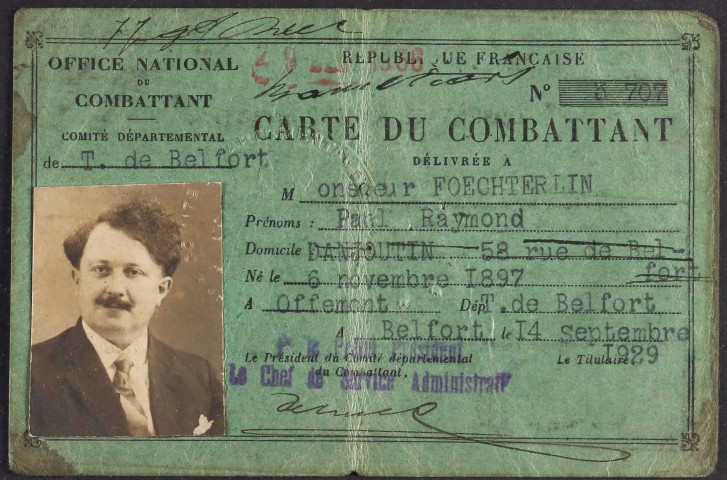 OFFICE NATIONAL
DU
COMBATTANT
COMITÉ DÉPARTEMENTAL
de T. de Belfort
REPUBLIQUE FRANÇAISE
N° 5 707
CARTE DU COMBATTANT
DÉLIVRÉE A
Monsieur FOECHTERLIN
Prénoms : Paul Raymond
Domicile DANJOUTIN 58 rue de Bel-
fort
Né le 6 novembre I897
A Offemont Dép T. de Belfort
A Belfort le I4 septembre
I929
Le Président du Comité départemental
du Combattant,
Le Titulaire
Le Chef de Service Administratif